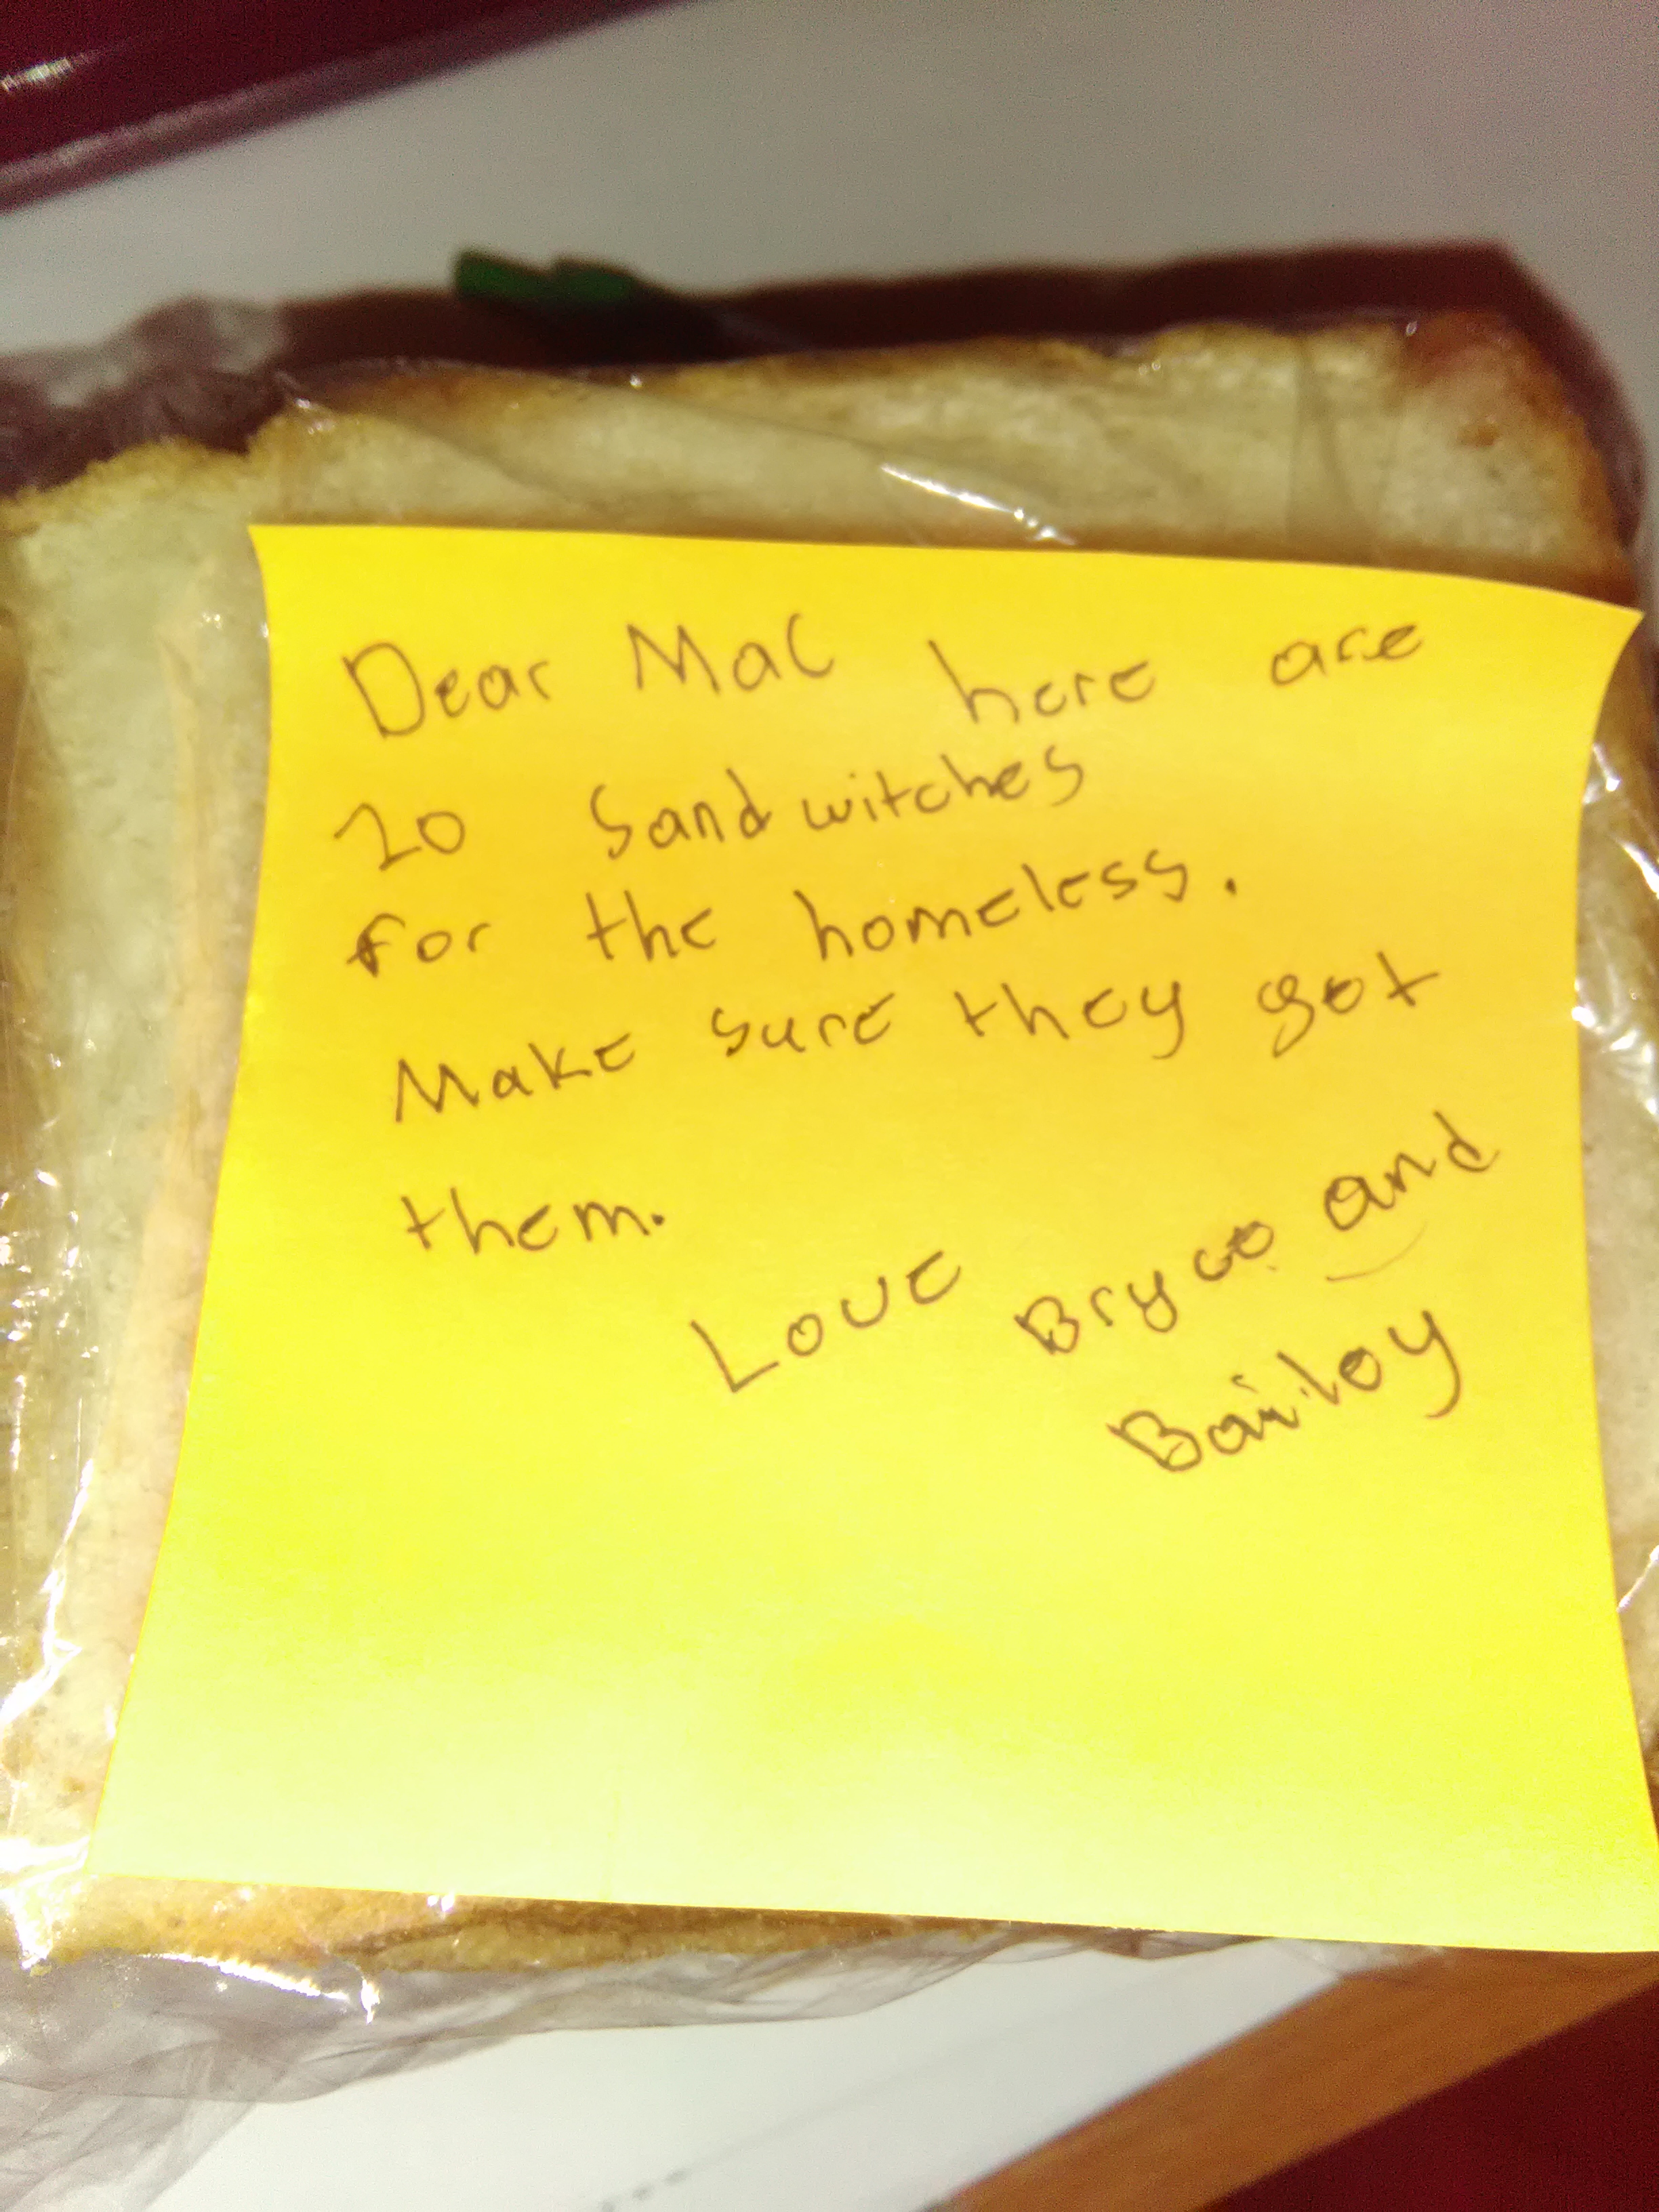 Dear Mac here are
20 Sandwitches
for the homeless.
Make sure they get
them.
Love Bryce and
Bailey